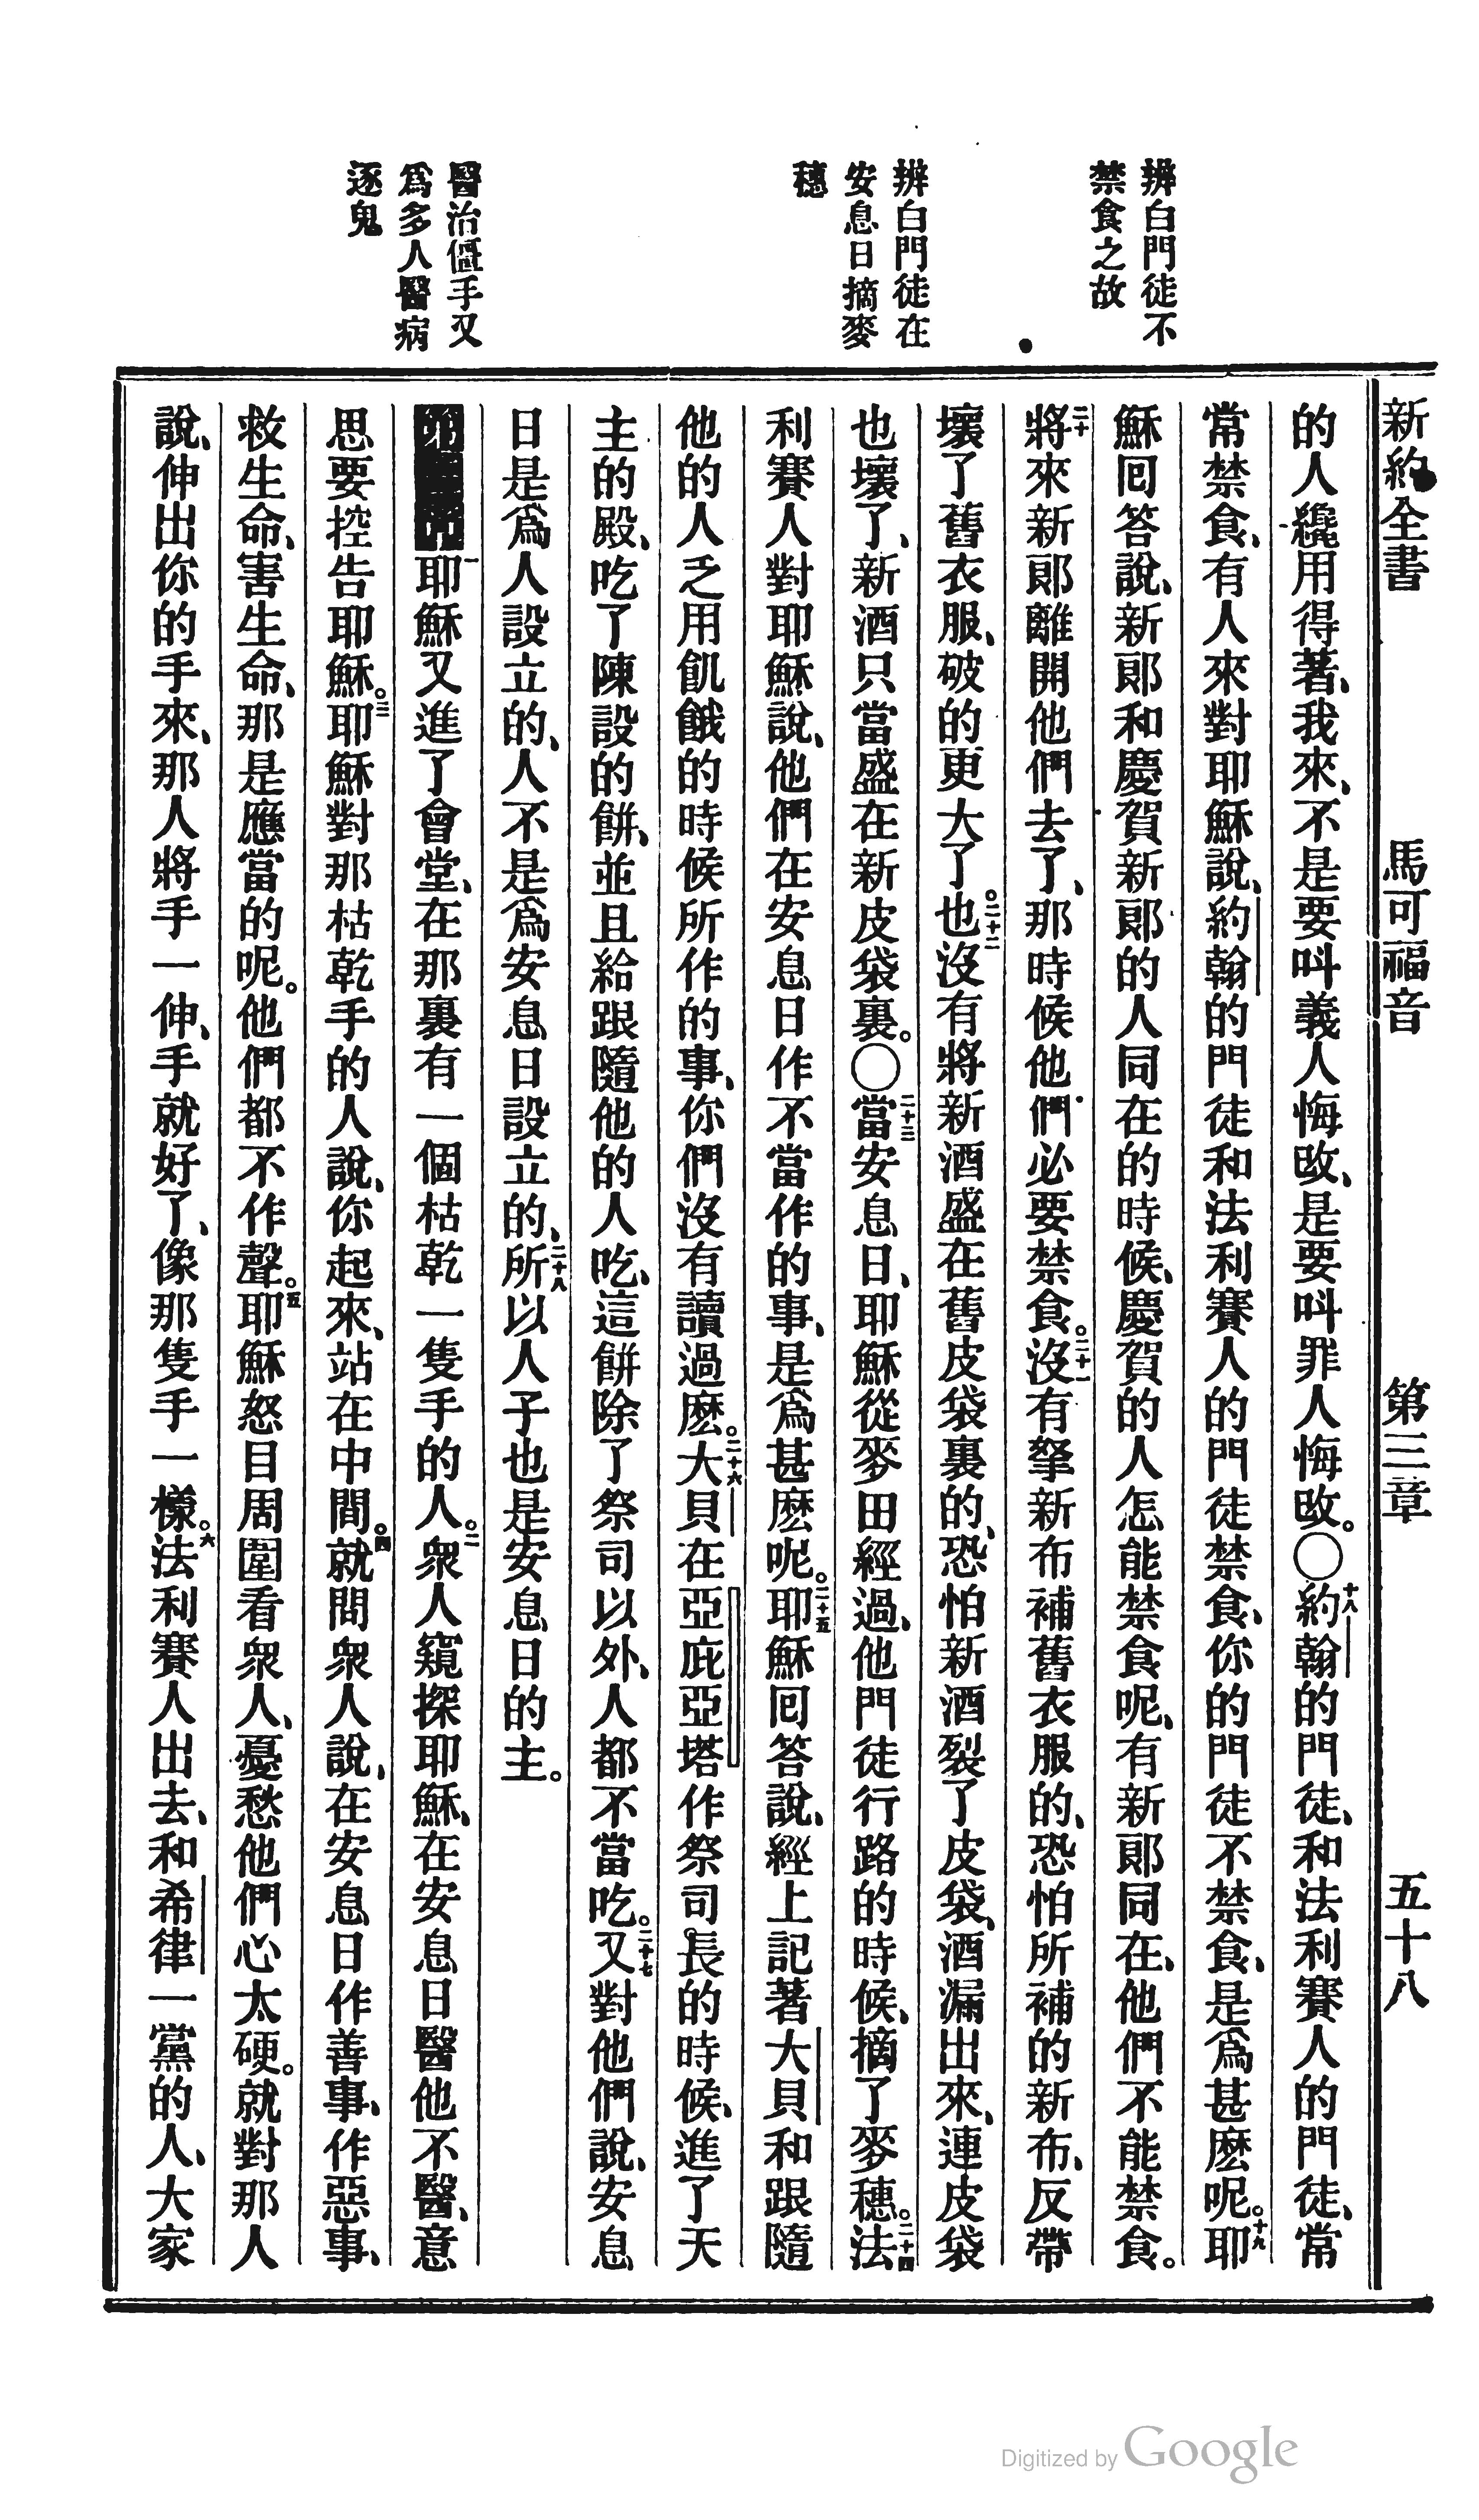 新約全書 馬可福音 第三章 五十八
辨白門徒不
禁食之故
辨白門徒在
安息日摘麥
穗
醫治傴手又
爲多人醫病
逐鬼
的人纔用得著、我來、不是要呌義人悔改、是要呌罪人悔改。〇十八約翰的門徒、和法利賽人的門徒、常
常禁食、有人來對耶穌說、約翰的門徒和法利賽人的門徒禁食、你的門徒不禁食、是爲甚麽呢。十九耶
穌囘答說、新郎和慶賀新郎的人同在的時候、慶賀的人怎能禁食呢、有新郎同在、他們不能禁食。
二十將來新郎離開他們去了、那時候他們必要禁食。二十一沒有拏新布補舊衣服的、恐怕所補的新布、反帶
壞了舊衣服、破的更大了。二十二也沒有將新酒盛在舊皮袋裏的、恐怕新酒裂了皮袋、酒漏出來、連皮袋
也壞了、新酒只當盛在新皮袋裏。〇二十三當安息日、耶穌從麥田經過、他門徒行路的時候、摘了麥穗。二十四法
利賽人對耶穌說、他們在安息日作不當作的事、是爲甚麽呢。二十五耶穌囘答說、經上記著大貝和跟隨
他的人乏用飢餓的時候所作的事、你們沒有讀過麽。二十六大貝在亞庇亞塔作祭司長的時候、進了天
主的殿、吃了陳設的餅、並且給跟隨他的人吃、這餅除了祭司以外、人都不當吃。二十七又對他們說、安息
日是爲人設立的、人不是爲安息日設立的、二十八所以人子也是安息日的主。
一耶穌又進了會堂、在那裏有一個枯乾一隻手的人。二衆人窺探耶穌、在安息日醫他不醫、意
思要控告耶穌。三耶穌對那枯乾手的人說、你起來、站在中間。四就問衆人說、在安息日作善事、作惡事、
救生命、害生命、那是應當的呢。他們都不作聲。五耶穌怒目周圍看衆人、憂愁他們心太硬。就對那人
說、伸出你的手來、那人將手一伸、手就好了、像那隻手一樣。六法利賽人出去、和希律一黨的人、大家
Digitized by Google